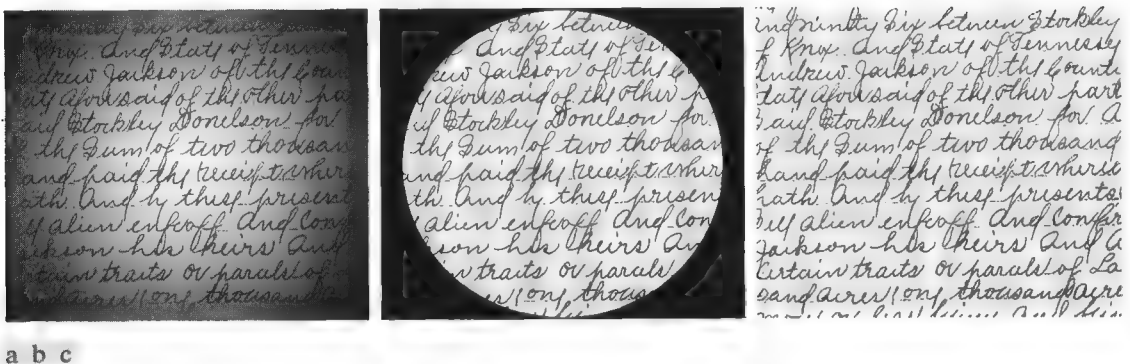 Six between
Knox. And Stat of Tennes
ndrew Jackson of the Coun
aty aforesaid of the other pa
aid Stockley Donelson for
f the Sum of two thousan
and paid the receipt wher
ath And by these present
alien enfeoff And Con
ackson his heirs And
rtain traits or parals of
and acres 1 ong thousand
Six between
And Stat of Ten
rew Jackson of the Co
aforesaid of the other p
id Stockley Donelson for
the Sum of two thousan
and paid the receipt wher
ath. And by these present
alien enfeoff And Con
son his heirs An
n traits or parals
res 1 ong thous
and ninety Six between Stockley
f Knox. And Stat of Tennessy
Andrew Jackson of the Count
taty aforesaid of the other part
aid Stockley Donelson for A
of the Sum of two thousand
hand paid the receipt wheri
hath And by these presents
alien enfeoff And Confir
Jackson his heirs And A
Certain traits or parals of La
sand acres 1 ong thousand acre
a b c